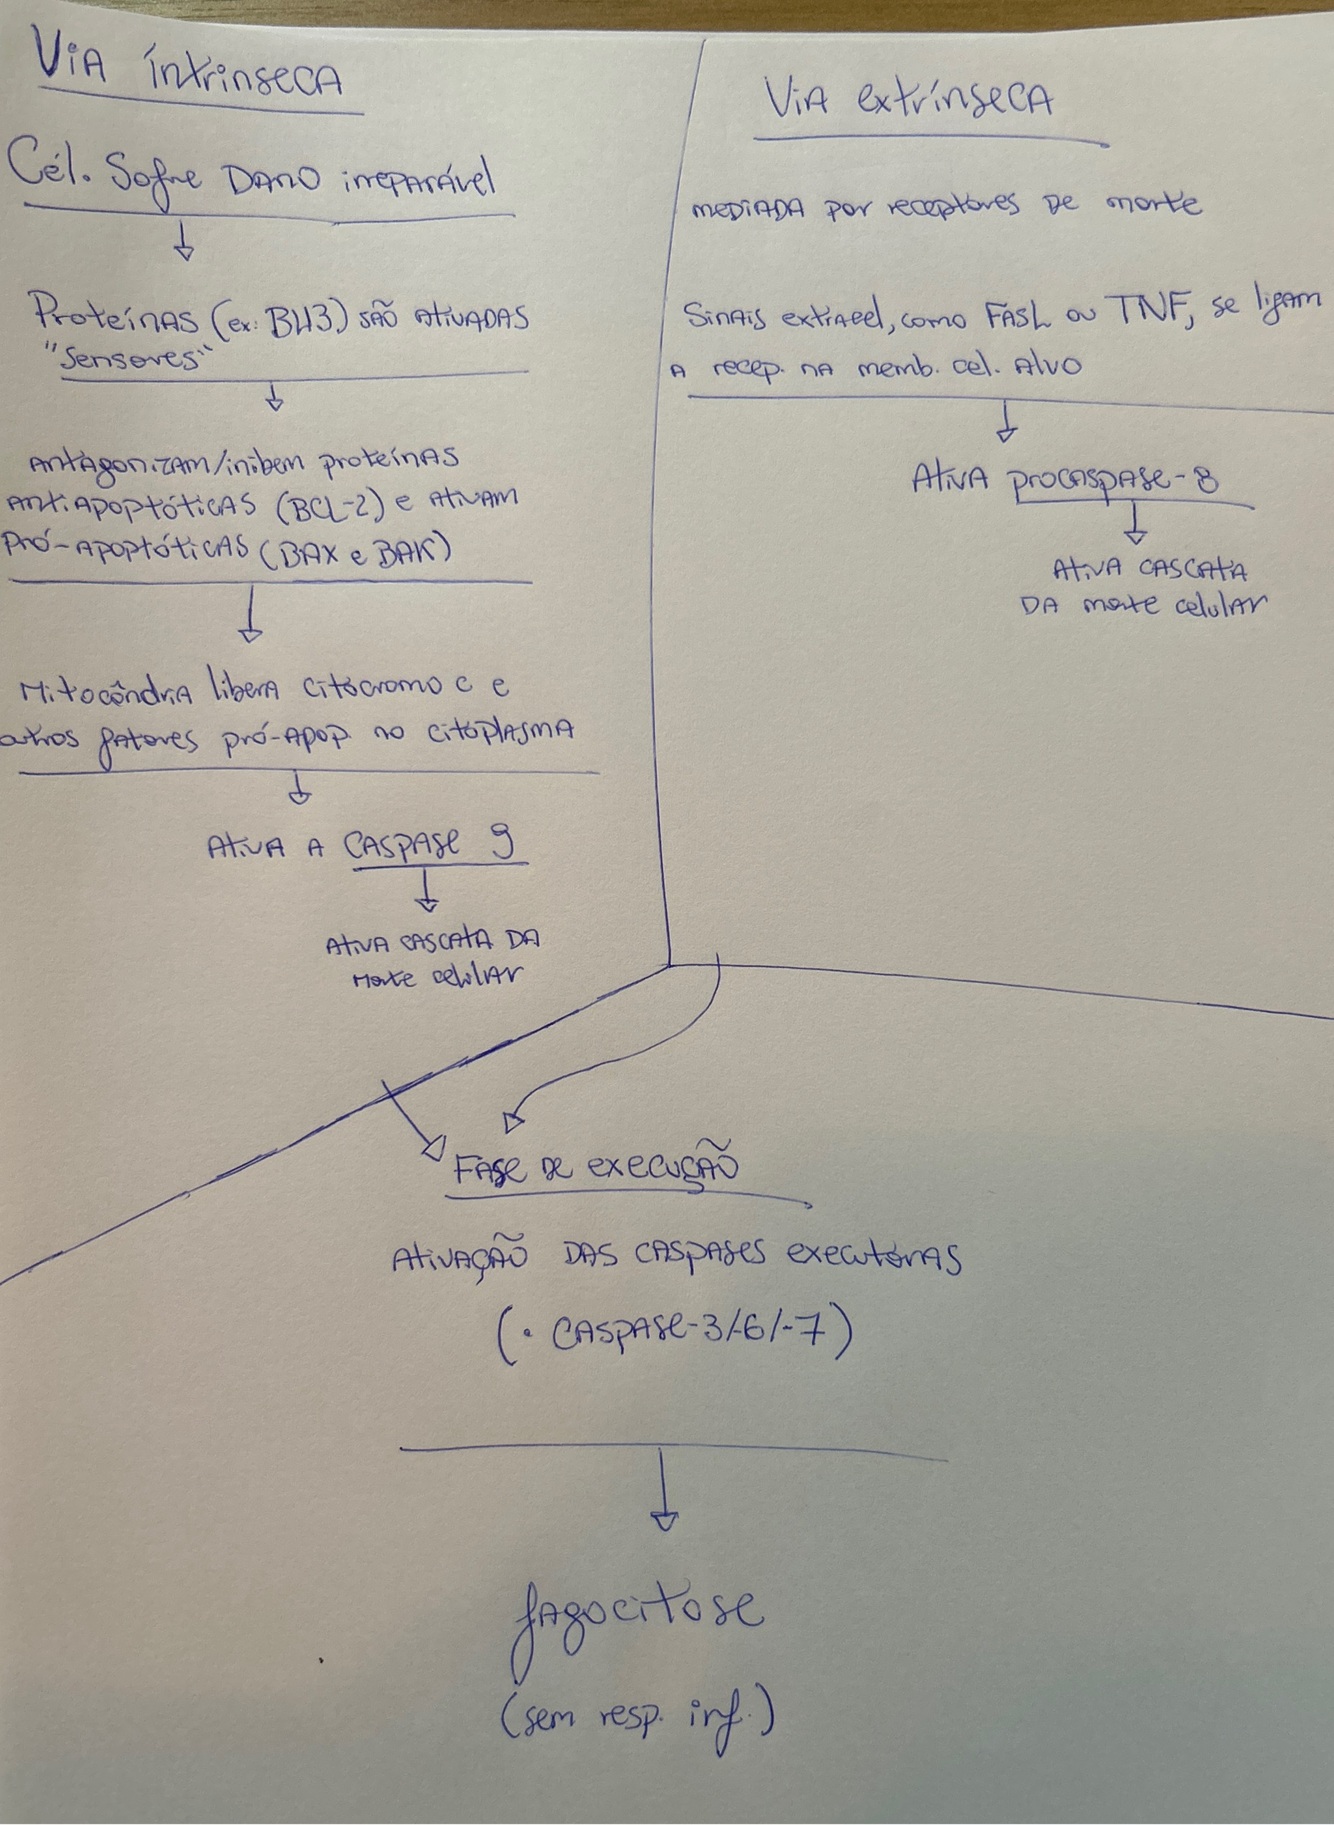 Via íntrinseca
Cél. Sofre Dano irreparável
Proteínas (ex: BH3) são ativadas
"Sensores"
Antagonizam/inibem proteínas
antiapoptóticas (BCL-2) e ativam
pró-apoptóticas (BAX e BAK)
Mitocôndria libera citocromo c e
outros fatores pró-apop. no citoplasma
Ativa a caspase 9
Ativa cascata da
morte celular
Via extrínseca
mediada por receptores de morte
Sinais extracel, como FASL ou TNF, se ligam
a recep. na memb. cel. Alvo
Ativa procaspase-8
Ativa cascata
da morte celular
Fase de execução
Ativação das caspases executóras
(• caspase-3/-6/-7)
fagocitose
(sem resp. inf.)